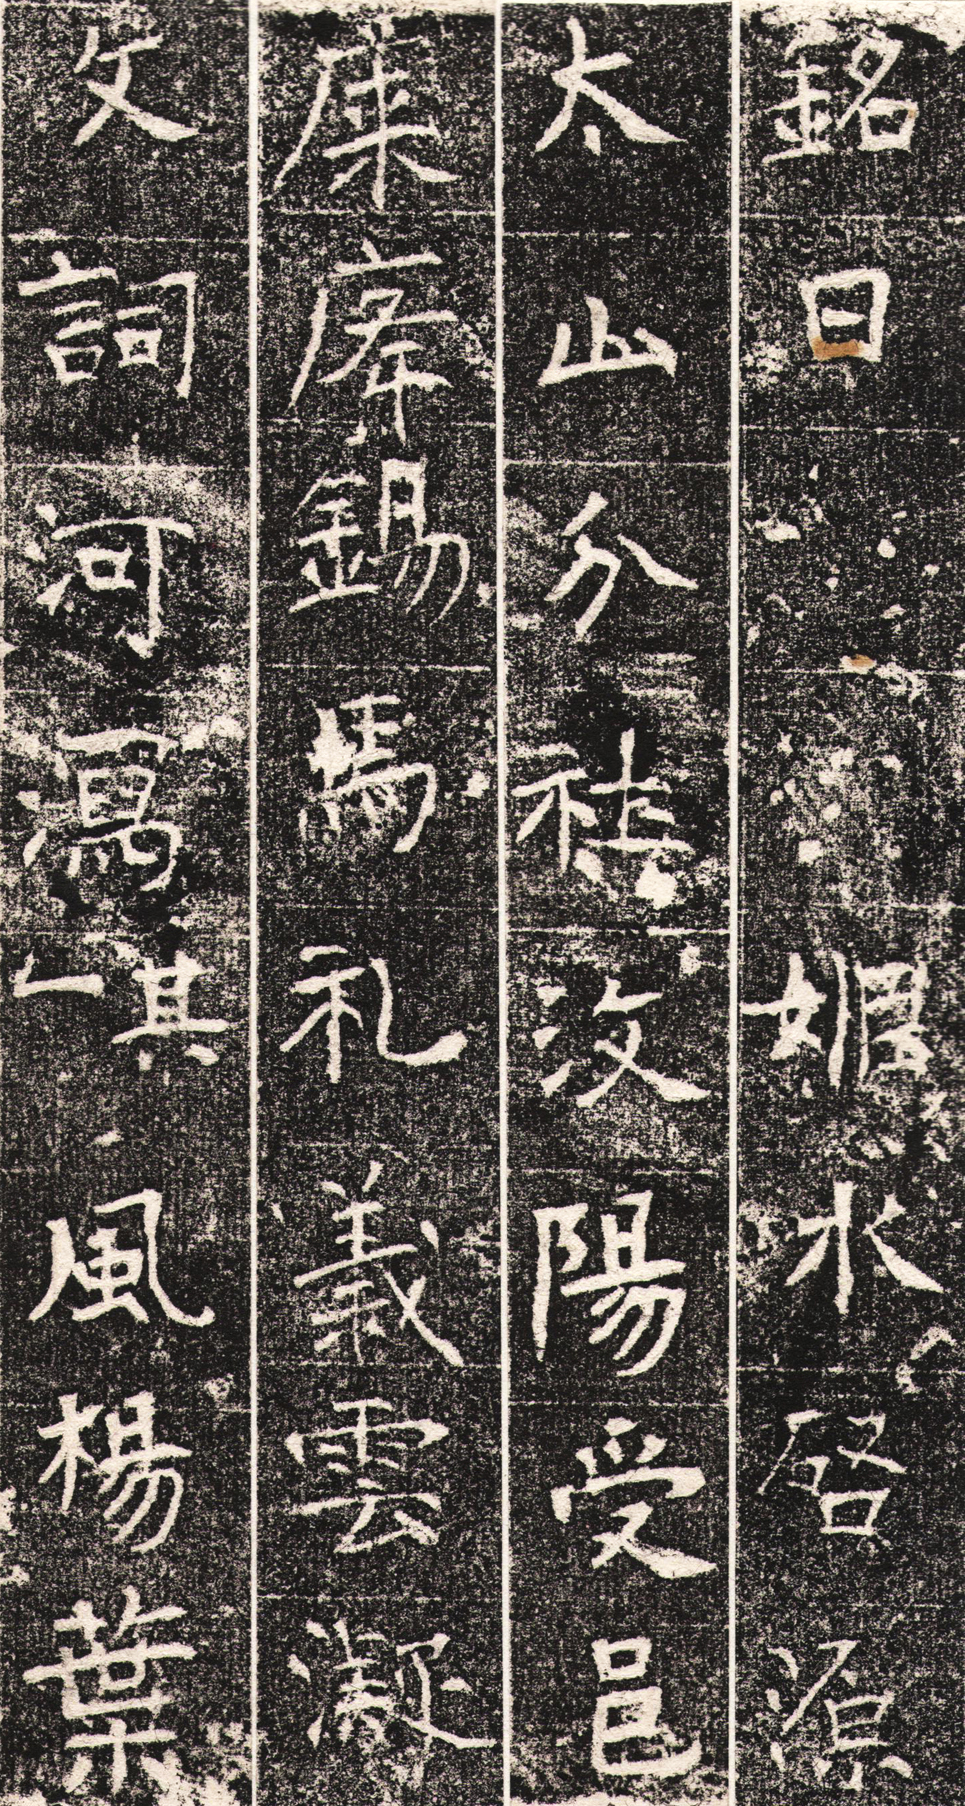 銘曰嬀水啓源
太山分社汶陽受邑
康侯錫馬礼義雲凝
文詞河寫其一風楊葉